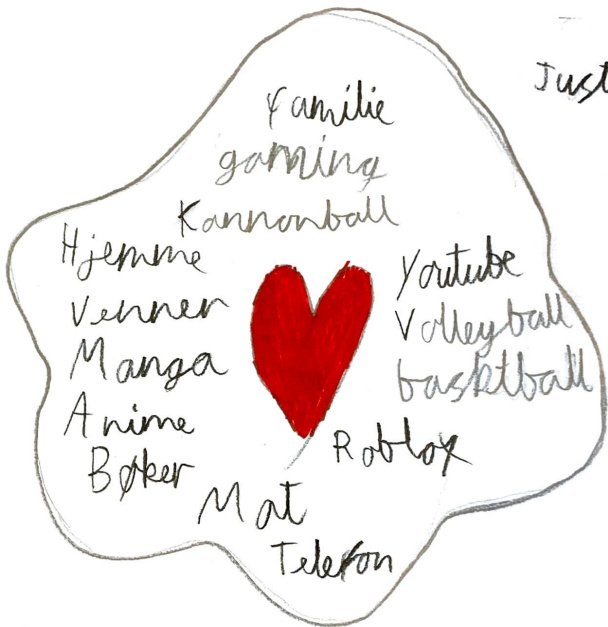 Just
Familie
gaming
Kannonball
Hjemme
Venner
Manga
Anime
Bøker
Youtube
Volleyball
basktball
Roblox
Mat
Telefon